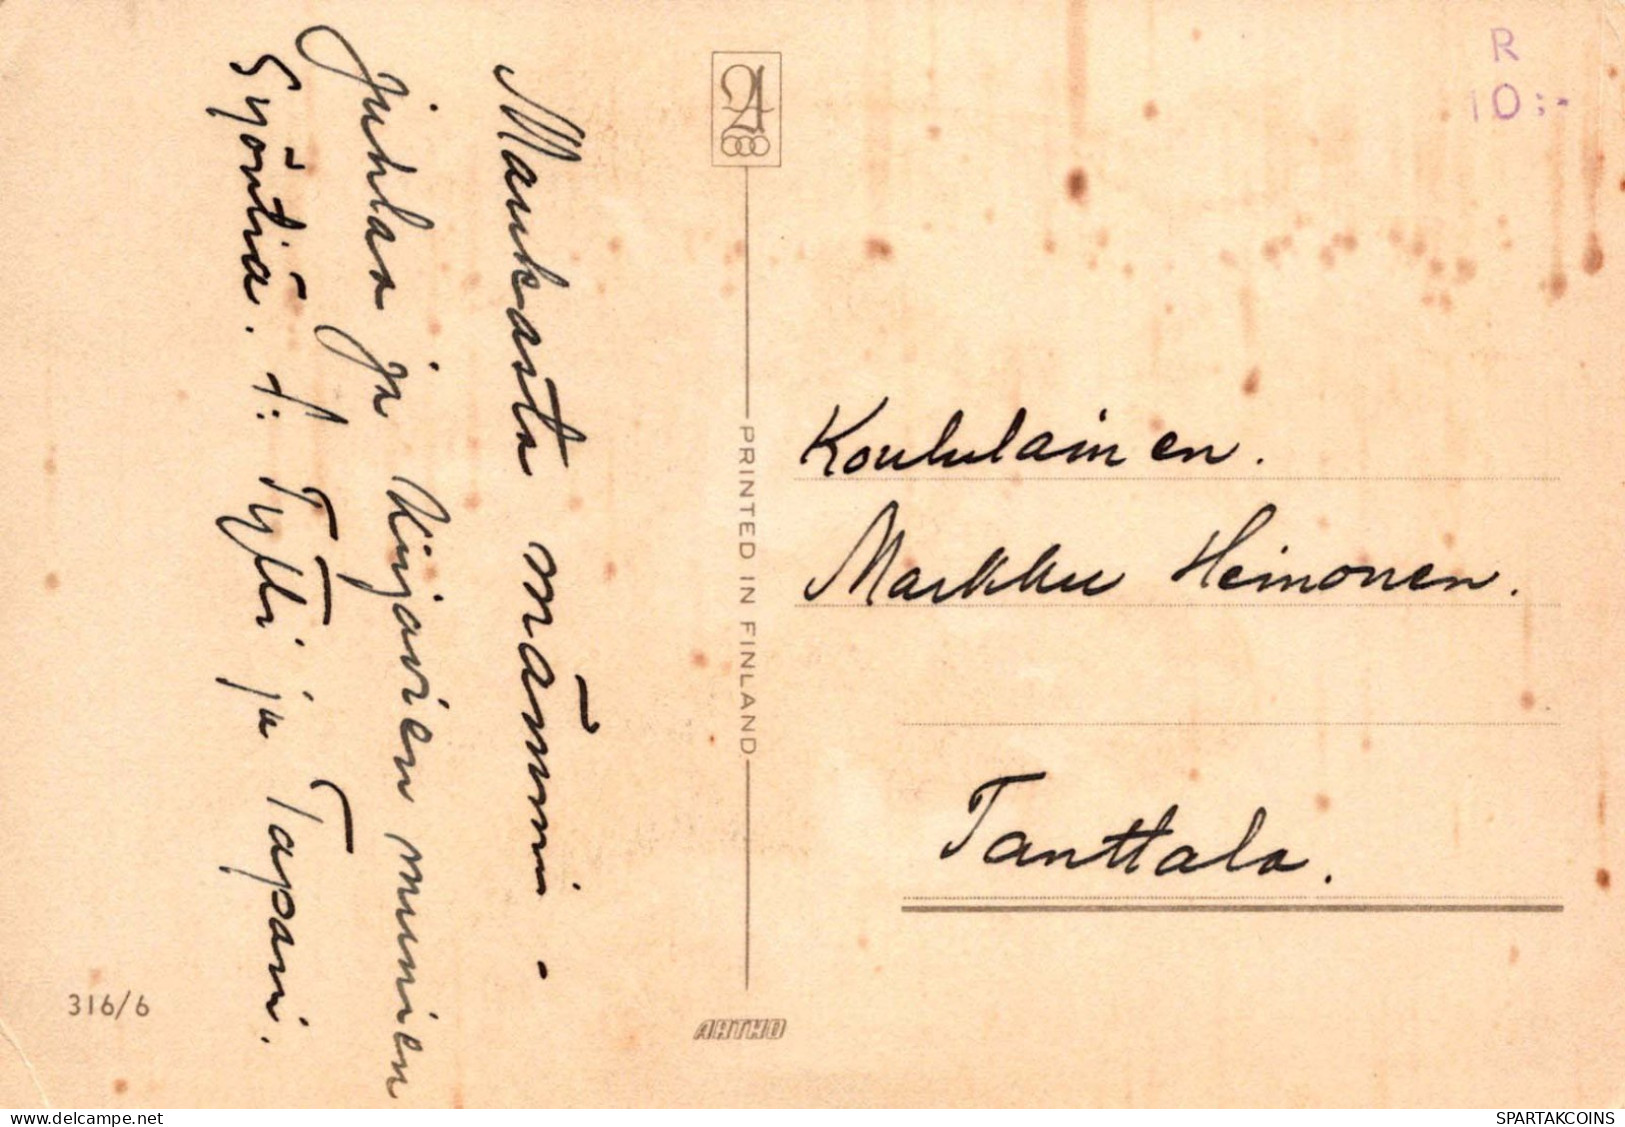 Maukasta mämmi-
juhlaa ja kirjavien munien
Syöntiä. T: Tytti ja Tapani.
PRINTED IN FINLAND
ARTKO
316/6
R
10:-
Koululainen.
Markku Heinonen.
Tanttala.
delcampe.net
SPARTAKCOINS